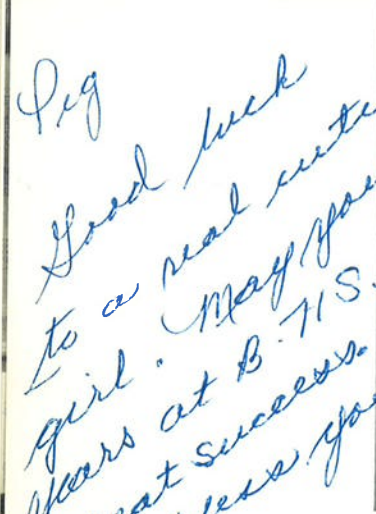 Peg
Good luck
to a real cute
girl. May you
years at B.H.S.
at success.
ess you